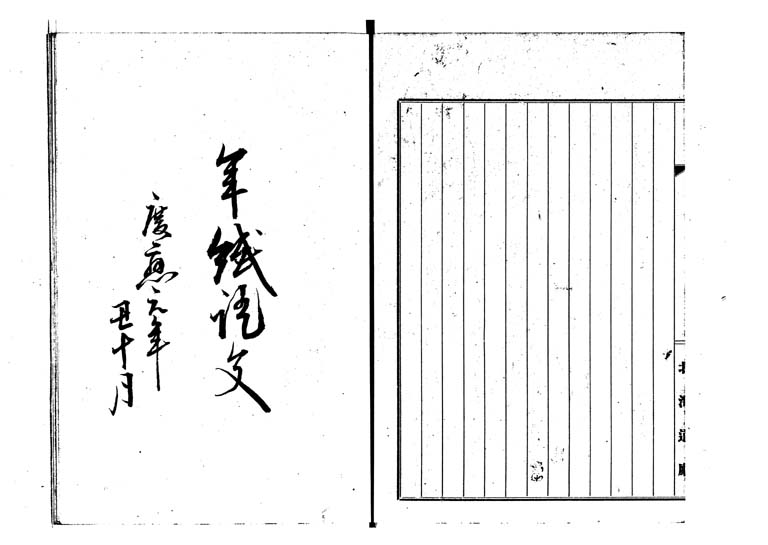 北海道廳
年賦證文
慶應元年
丑十月